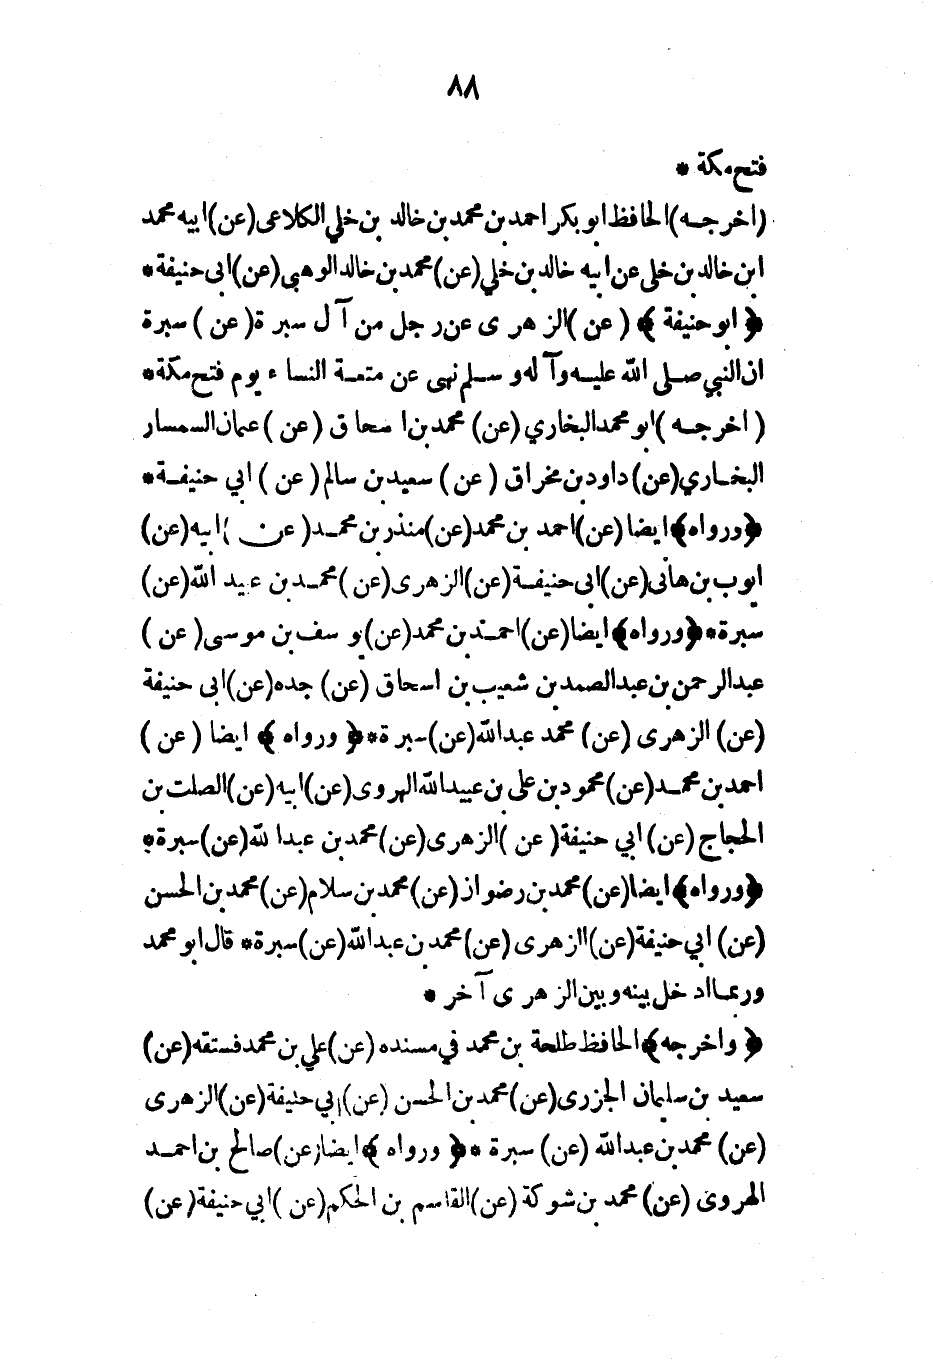 ٨٨
فتح مكة *
(اخرجه) الحافظ ابو بكر احمد بن محمد بن خالد بن خلي الكلاعى (عن) ابيه محمد
ابن خالد بن خلى عن ابيه خالد بن خلي (عن) محمد بن خالد الوهبى (عن) ابى حنيفة *
﴿ ابو حنيفة ﴾ (عن) الزهرى عن رجل من آل سبرة (عن) سبرة
ان النبي صلى الله عليه وآله وسلم نهى عن متعة النساء يوم فتح مكة *
(اخرجه) ابو محمد البخاري (عن) محمد بن اسحاق (عن) عثمان السمسار
البخاري (عن) داود بن مخراق (عن) سعيد بن سالم (عن) ابي حنيفة *
﴿ ورواه ﴾ ايضا (عن) احمد بن محمد (عن) منذر بن محمد (عن) ابيه (عن)
ايوب بن هانى (عن) ابى حنيفة (عن) الزهرى (عن) محمد بن عبيد الله (عن)
سبرة * ﴿ ورواه ﴾ ايضا (عن) احمد بن محمد (عن) يوسف بن موسى (عن)
عبد الرحمن بن عبد الصمد بن شعيب بن اسحاق (عن) جده (عن) ابى حنيفة
(عن) الزهرى (عن) محمد عبد الله (عن) سبرة * ﴿ ورواه ﴾ ايضا (عن)
احمد بن محمد (عن) محمود بن على بن عبيد الله الهروى (عن) ابيه (عن) الصلت بن
الحجاج (عن) ابي حنيفة (عن) الزهرى (عن) محمد بن عبد الله (عن) سبرة *
﴿ ورواه ﴾ ايضا (عن) محمد بن رضوان (عن) محمد بن سلام (عن) محمد بن الحسن
(عن) ابي حنيفة (عن) الزهرى (عن) محمد بن عبد الله (عن) سبرة * قال ابو محمد
وربما ادخل بينه وبين الزهرى آخر *
﴿ واخرجه ﴾ الحافظ طلحة بن محمد في مسنده (عن) علي بن محمد فستقه (عن)
سعيد بن سليمان الجزرى (عن) محمد بن الحسن (عن) ابي حنيفة (عن) الزهرى
(عن) محمد بن عبد الله (عن) سبرة * ﴿ ورواه ﴾ ايضا (عن) صالح بن احمد
الهروى (عن) محمد بن شوكة (عن) القاسم بن الحكم (عن) ابي حنيفة (عن)